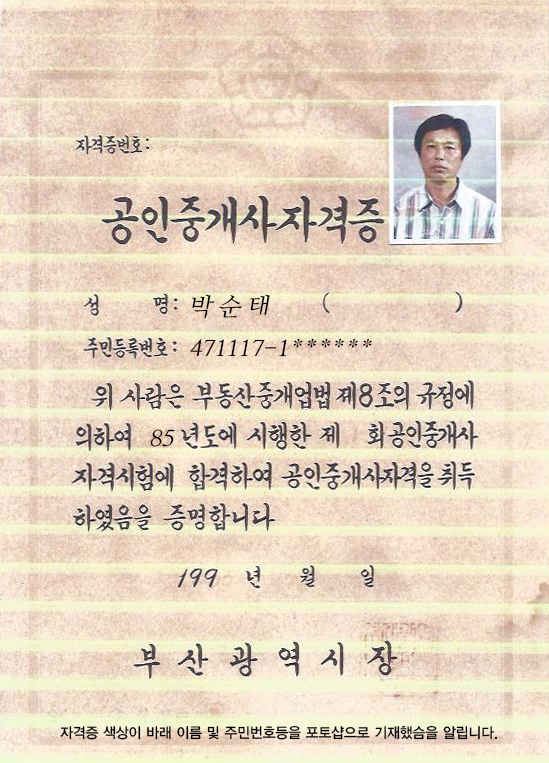 자격증번호:
공인중개사자격증
성 명: 박순태 ( )
주민등록번호: 471117-1******
위 사람은 부동산중개업법 제8조의 규정에
의하여 85년도에 시행한 제 회공인중개사
자격시험에 합격하여 공인중개사자격을 취득
하였음을 증명합니다
199 년 월 일
부산광역시장
자격증 색상이 바래 이름 및 주민번호등을 포토샵으로 기재했슴을 알립니다.